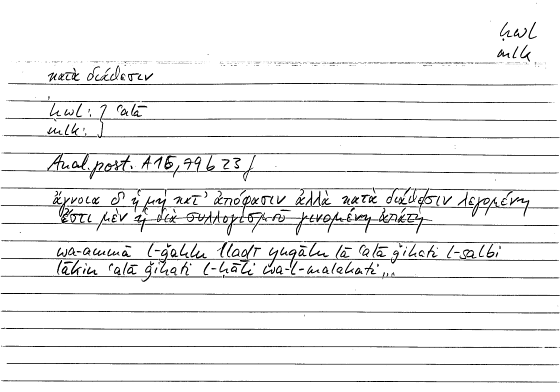 ḥwl
mlk
κατὰ διάθεσιν
ḥwl: } ʿalā
mlk: }
Anal. post. A16, 79b23f
ἄγνοια δ' ἡ μὴ κατ' ἀπόφασιν ἀλλὰ κατὰ διάθεσιν λεγομένη
ἔστι μὲν ἡ διὰ συλλογισμοῦ γινομένη ἀπάτη
wa-ammā l-ǧahlu llaḏī yuqālu lā ʿalā ǧihati l-salbi
lākin ʿalā ǧihati l-ḥāli wa-l-malakati...